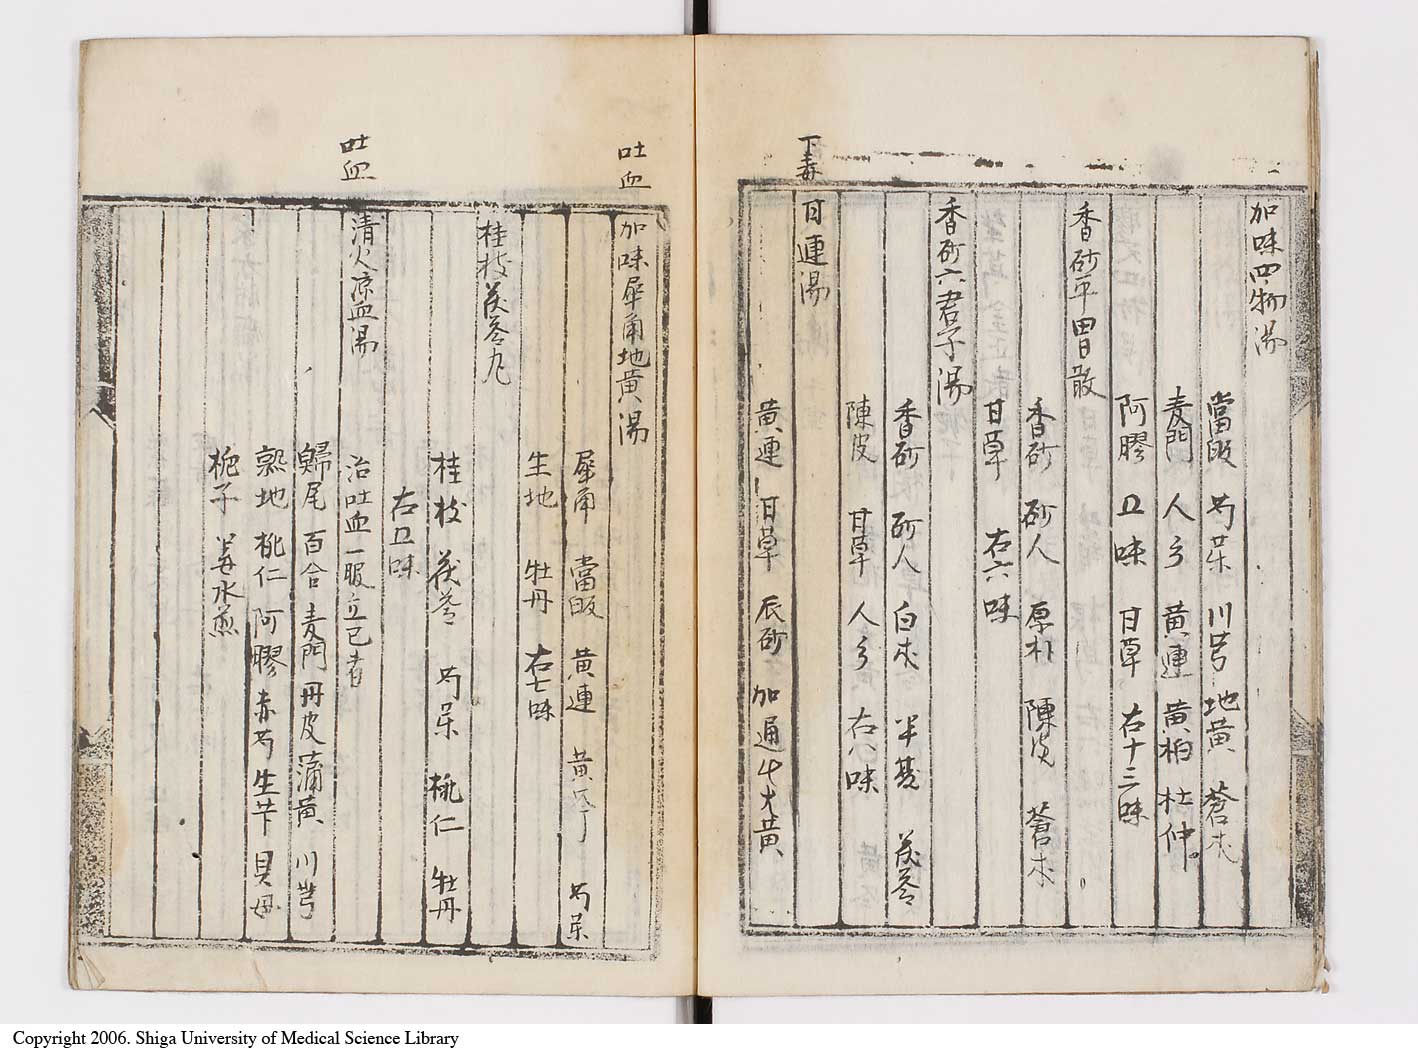 加味四物湯
當皈 芍药 川芎 地黄 蒼朮
麦門 人参 黄連 黄柏 杜仲
阿膠 五味 甘草 右十三味
香砂平胃散
香砂 砂人 厚朴 陳皮 蒼朮
甘草 右六味
香砂六君子湯
香砂 砂人 白朮 半夏 茯苓
陳皮 甘草 人参 右八味
下毒
甘連湯
黄連 甘草 辰砂 加通 大黄
吐血
加味犀角地黄湯
犀角 當皈 黄連 黄芩 芍药
生地 牡丹 右七味
桂枝茯苓丸
桂枝 茯苓 芍药 桃仁 牡丹
右五味
吐血
清火凉血湯
治吐血一服立已者
歸尾 百合 麦門 丹皮 蒲黄 川芎
熟地 桃仁 阿膠 赤芍 生芐 貝母
梔子 姜水煎
Copyright 2006. Shiga University of Medical Science Library